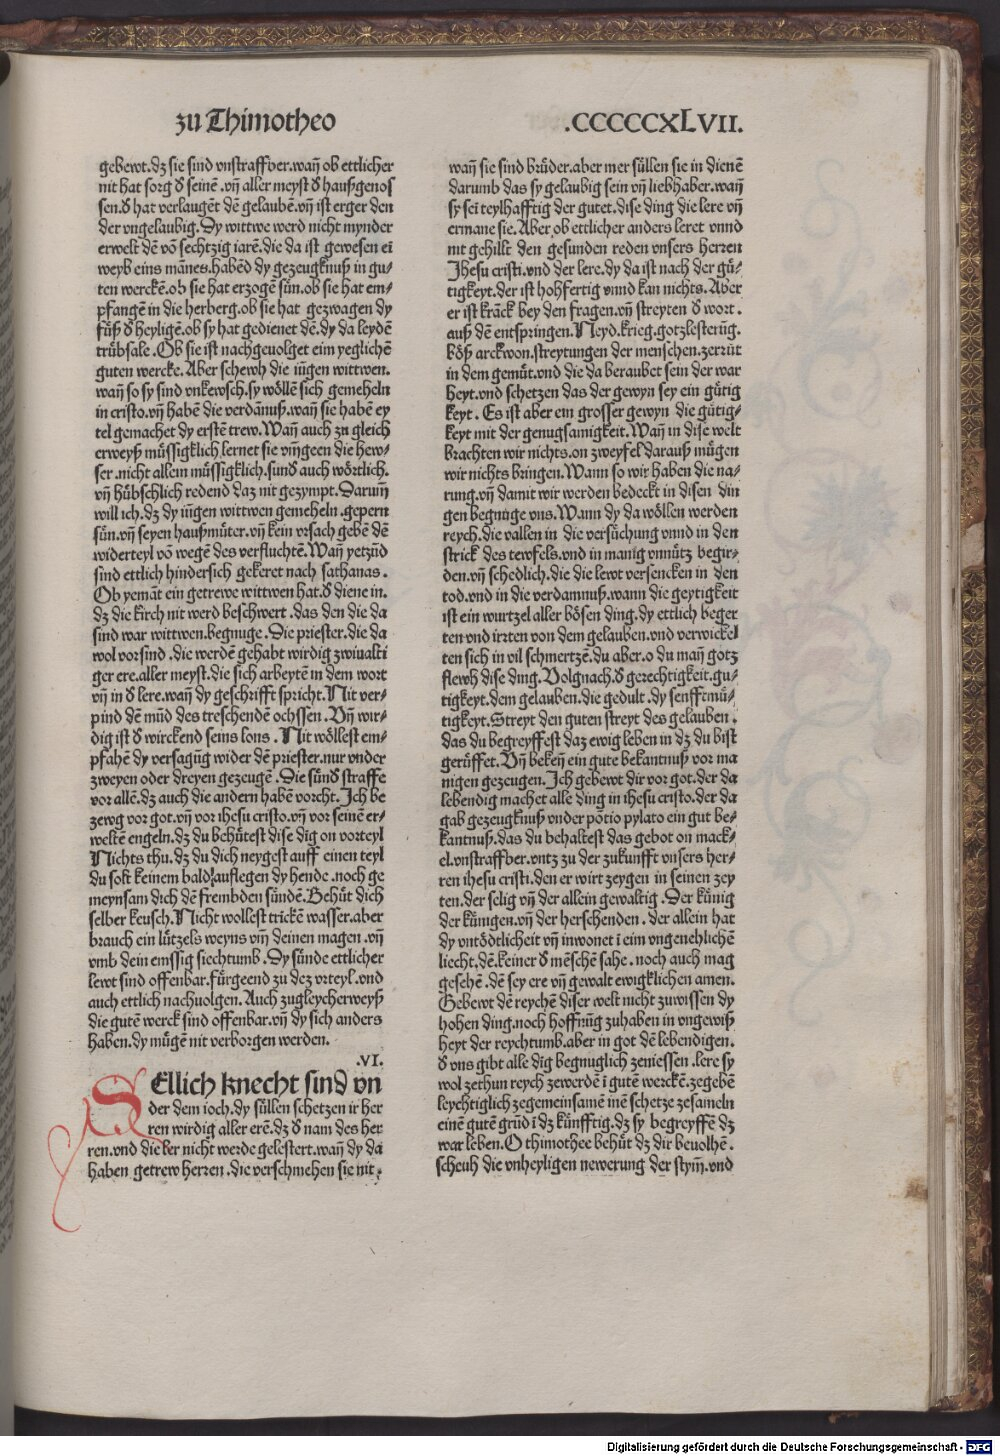 zu Thimotheo
.CCCCCXLVII.
gebewt.dz sie sind vnstraffber.wañ ob ettlicher
nit hat sorg d̕ seinē.vñ aller meyst d̕ haußgenos
sen.d̕ hat verlaugēt dē gelaubē.vñ ist erger den
der vngelaubig.Dy wittwe werd nicht mynder
erwelt dē vō sechtzig iarē.die da ist gewesen ei
weyb eins mānes.habēd dy gezeugknuß in gu⸗
ten werckē.ob sie hat erzogē sün.ob sie hat em⸗
pfangē in die herberg.ob sie hat gezwagen dy
füß d̕ heyligē.ob sy hat gedienet dē.dy da leydē
trübsale.Ob sie ist nachgeuolget eim yeglichē
guten wercke.Aber schewh die iūgen wittwen.
wañ so sy sind vnkewsch.sy wöllē sich gemeheln
in cristo.vñ habē die verdānuß.wañ sie habē ey
tel gemachet dy erstē trew.Wañ auch zu gleich
erweyß müssigklich lernet sie vmgeen die hew⸗
ser.nicht allein müssigklich.sund̕ auch wörtlich.
vñ hübschlich redend daz nit gezympt.Darum
will ich.dz dy iūgen wittwen gemeheln.gepern
sün.vñ seyen haußmüter.vñ kein vrsach gebē dē
widerteyl vō wegē des verfluchtē.Wañ yetzūd
sind ettlich hindersich gekeret nach sathanas.
Ob yemāt ein getrewe wittwen hat.d̕ diene in.
dz die kirch nit werd beschwert.das den die da
sind war wittwen.begnuge.Die priester.die da
wol vorsind.die werdē gehabt wirdig zwiualti
ger ere.aller meyst.die sich arbeytē in dem wort
vñ in d̕ lere.wañ dy geschrifft spricht.Nit ver⸗
pind dē mūd des treschendē ochssen.Vñ wir⸗
dig ist d̕ wirckend seins lons.Nit wöllest em⸗
pfahē dy versagūg wider dē priester.nur vnder
zweyen oder dreyen gezeugē.Die sünd̕ straffe
vor allē.dz auch die andern habē vorcht.Ich be
zewg vor got.vñ vor ihesu cristo.vñ vor seinē er⸗
weltē engeln.dz du behütest dise dīg on vorteyl
Nichts thu.dz du dich neygest auff einen teyl
du solt keinem bald auflegen dy hende.noch ge
meynsam dich dē frembden sündē.Behüt dich
selber keusch.Nicht wollest trickē wasser.aber
brauch ein lützels weyns vm̄ deinen magen.vñ
vmb dein emssig siechtumb.Dy sünde ettlicher
lewt sind offenbar.fürgeend zu dez vrteyl.vnd
auch ettlich nachuolgen.Auch zugleycherweyß
die gutē werck sind offenbar.vñ dy sich anders
haben.dy mügē nit verborgen werden.
.VI.
SEllich knecht sind vn
der dem ioch.dy süllen schetzen ir her
ren wirdig aller erē.dz d̕ nam des her
ren.vnd die ler nicht werde gelestert.wañ dy da
haben getrew herzen.die verschmehen sie nit.
wañ sie sind brüder.aber mer süllen sie in dienē
darumb das sy gelaubig sein vñ liebhaber.wañ
sy sei teylhafftig der gutet.dise ding die lere vñ
ermane sie.Aber ob ettlicher anders leret vnnd
nit gehillt den gesunden reden vnsers herren
Jhesu cristi.vnd der lere.dy da ist nach der gü⸗
tigkeyt.der ist hohfertig vnnd kan nichts.Aber
er ist krāck bey den fragen.vñ streyten d̕ wort.
auß dē entspringen.Neyd.krieg.gotzlesterūg.
böß arckwon.streytungen der menschen.zerrüt
in dem gemüt.vnd die da beraubet sein der war
heyt.vnd schetzen das der gewyn sey ein gütig
keyt.Es ist aber ein grosser gewyn die gütig⸗
keyt mit der genugsamigkeit.Wañ in dise welt
brachten wir nichts.on zweyfel darauß mügen
wir nichts bringen.Wann so wir haben die na⸗
rung.vñ damit wir werden bedeckt in disen din
gen begnüge vns.Wann dy da wöllen werden
reych.die vallen in die versüchung vnnd in den
strick des tewfels.vnd in manig vnnütz begir⸗
den.vñ schedlich.die die lewt versencken in den
tod.vnd in die verdamnuß.wann die geytigkeit
ist ein wurtzel aller bösen ding.dy ettlich beger
ten vnd irrten von dem gelauben.vnd verwickel
ten sich in vil schmertzē.du aber.o du mañ gotz
flewh dise ding.Volgnach.d̕ gerechtigkeit.gu⸗
tigkeyt.dem gelauben.die gedult.dy senfftmü⸗
tigkeyt.Streyt den guten streyt des gelauben.
das du begreyffest daz ewig leben in dz du bist
gerüffet.Vñ bekeñ ein gute bekantnuß vor ma
nigen gezeugen.Ich gebewt dir vor got.der da
lebendig machet alle ding in ihesu cristo.der da
gab gezeugknuß vnder pōtio pylato ein gut be⸗
kantnuß.das du behaltest das gebot on mack⸗
el.vnstraffber.vntz zu der zukunfft vnsers her⸗
ren ihesu cristi.den er wirt zeygen in seinen zey
ten.der selig vñ der allein gewaltig.Der künig
der künigen.vñ der herschenden.der allein hat
dy vntödtlicheit vñ inwonet i eim vngenehlichē
liecht.dē.keiner d̕ mēschē sahe.noch auch mag
gesehē.dē sey ere vñ gewalt ewigklichen amen.
Gebewt dē reychē diser welt nicht zuwissen dy
hohen ding.noch hoffnūg zuhaben in vngewiß
heyt der reychtumb.aber in got dē lebendigen.
d̕ vns gibt alle dīg begnuglich zeniessen.lere sy
wol zethun reych zewerdē i gutē werckē.zegebē
leychtiglich zegemeinsamē inē schetze zesameln
einē gutē grūd i dz künfftig.dz sy begreyffē dz
war leben.O thimothee behüt dz dir beuolhē.
scheuh die vnheyligen newerung der stym̄.vnd
Digitalisierung gefördert durch die Deutsche Forschungsgemeinschaft - DFG